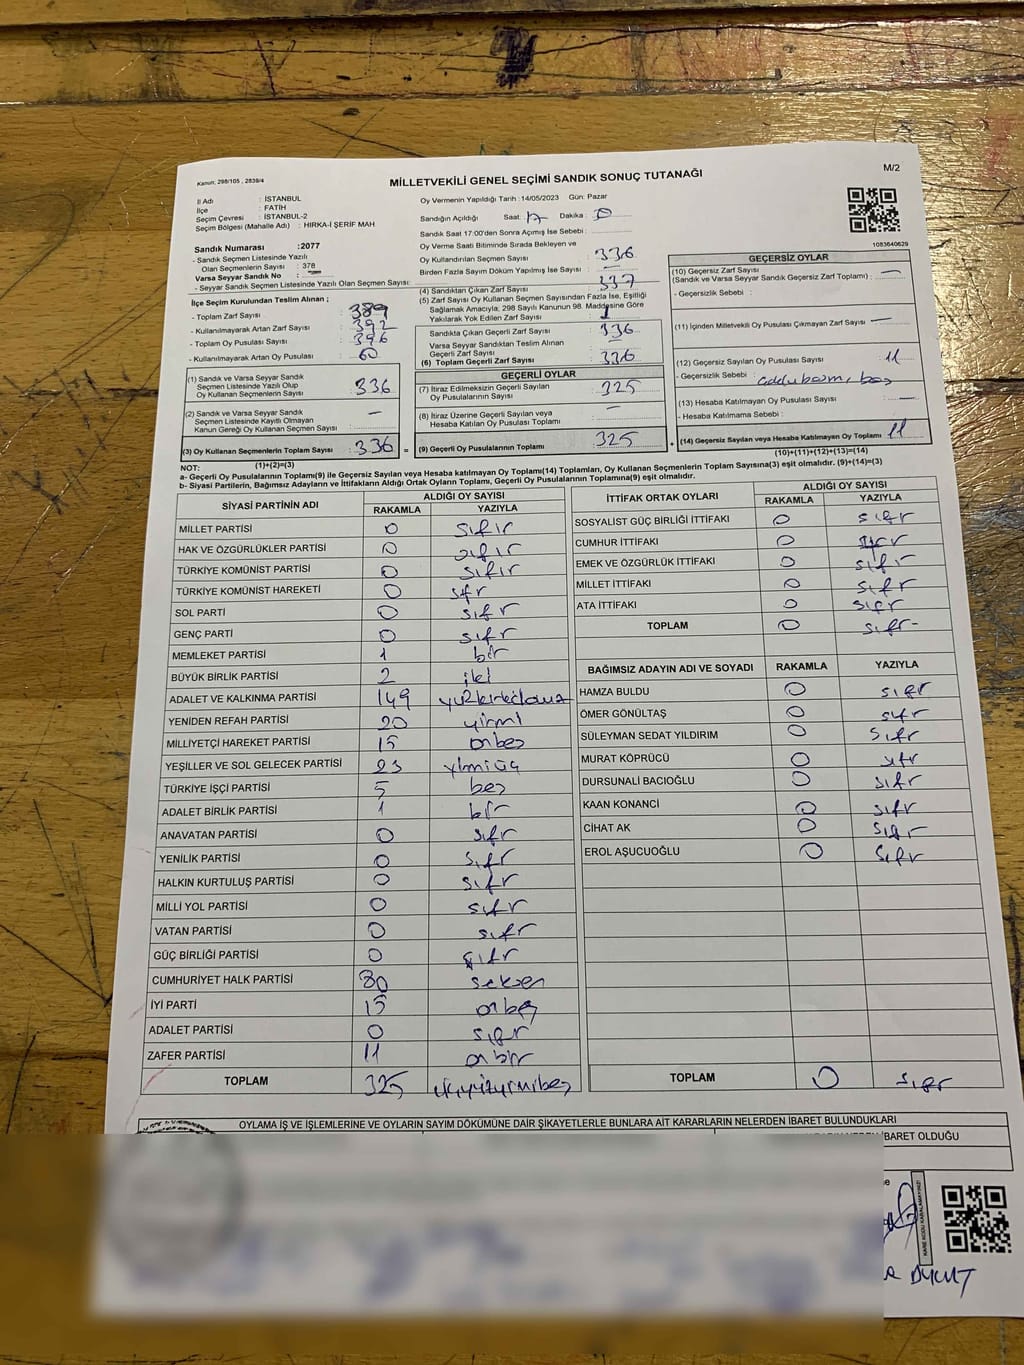 Kanun: 298/105 , 2839/4
MİLLETVEKİLİ GENEL SEÇİMİ SANDIK SONUÇ TUTANAĞI
M/2
İl Adı : İSTANBUL
İlçe : FATİH
Seçim Çevresi : İSTANBUL-2
Seçim Bölgesi (Mahalle Adı) : HIRKA-İ ŞERİF MAH
Sandık Numarası :2077
- Sandık Seçmen Listesinde Yazılı
Olan Seçmenlerin Sayısı : 378
Varsa Seyyar Sandık No :
- Seyyar Sandık Seçmen Listesinde Yazılı Olan Seçmen Sayısı:
Oy Vermenin Yapıldığı Tarih :14/05/2023 Gün: Pazar
Sandığın Açıldığı Saat: 17 Dakika : 0
Sandık Saat 17:00'den Sonra Açılmış İse Sebebi :
Oy Verme Saati Bitiminde Sırada Bekleyen ve
Oy Kullandırılan Seçmen Sayısı : 336
Birden Fazla Sayım Döküm Yapılmış İse Sayısı : —
1083640629
İlçe Seçim Kurulundan Teslim Alınan ;
- Toplam Zarf Sayısı : 389
- Kullanılmayarak Artan Zarf Sayısı :
- Toplam Oy Pusulası : 396
- Kullanılmayarak Artan Oy Pusulası : 60
(1) Sandık ve Varsa Seyyar Sandık
Seçmen Listesinde Yazılı Olup
Oy Kullanan Seçmen Sayısı : 336
(2) Sandık ve Varsa Seyyar Sandık
Seçmen Listesinde Kayıtlı Olmayan
Kanun Gereği Oy Kullanan Seçmen Sayısı : —
(3) Oy Kullanan Seçmenlerin Toplam Sayısı : 336
(1)+(2)=(3)
(4) Sandıktan Çıkan Zarf Sayısı : 337
(5) Zarf Sayısı Oy Kullanan Seçmen Sayısından Fazla İse, Eşitliği
Sağlamak Amacıyla; 298 Sayılı Kanunun 98. Maddesine Göre
Yakılarak Yok Edilen Zarf Sayısı : 1
Sandıkta Çıkan Geçerli Zarf Sayısı : 336
Varsa Seyyar Sandıktan Teslim Alınan
Geçerli Zarf Sayısı : —
(6) Toplam Geçerli Zarf Sayısı : 336
GEÇERLİ OYLAR
(7) İtiraz Edilmeksizin Geçerli Sayılan
Oy Pusulalarının Sayısı : 325
(8) İtiraz Üzerine Geçerli Sayılan veya
Hesaba Katılan Oy Pusulası Toplamı : —
= (9) Geçerli Oy Pusulalarının Toplamı : 325
GEÇERSİZ OYLAR
(10) Geçersiz Zarf Sayısı
(Sandık ve Varsa Seyyar Sandık Geçersiz Zarf Toplamı) : —
- Geçersizlik Sebebi :
(11) İçinden Milletvekili Oy Pusulası Çıkmayan Zarf Sayısı : —
(12) Geçersiz Sayılan Oy Pusulası Sayısı : 11
- Geçersizlik Sebebi :
(13) Hesaba Katılmayan Oy Pusulası Sayısı : —
- Hesaba Katılmama Sebebi :
+ (14) Geçersiz Sayılan veya Hesaba Katılmayan Oy Toplamı : 11
(10)+(11)+(12)+(13)=(14)
NOT:
a- Geçerli Oy Pusulalarının Toplamı(9) ile Geçersiz Sayılan veya Hesaba katılmayan Oy Toplamı(14) Toplamları, Oy Kullanan Seçmenlerin Toplam Sayısına(3) eşit olmalıdır. (9)+(14)=(3)
b- Siyasi Partilerin, Bağımsız Adayların ve İttifakların Aldığı Ortak Oyların Toplamı, Geçerli Oy Pusulalarının Toplamına(9) eşit olmalıdır.
SİYASİ PARTİNİN ADI ALDIĞI OY SAYISI
RAKAMLA YAZIYLA
MİLLET PARTİSİ 0 sıfır
HAK VE ÖZGÜRLÜKLER PARTİSİ 0 sıfır
TÜRKİYE KOMÜNİST PARTİSİ 0 sıfır
TÜRKİYE KOMÜNİST HAREKETİ 0 sıfr
SOL PARTİ 0 sıfr
GENÇ PARTİ 0 sıfr
MEMLEKET PARTİSİ 1 bir
BÜYÜK BİRLİK PARTİSİ 2 iki
ADALET VE KALKINMA PARTİSİ 149 yüzkırkdokuz
YENİDEN REFAH PARTİSİ 20 yirmi
MİLLİYETÇİ HAREKET PARTİSİ 15 onbeş
YEŞİLLER VE SOL GELECEK PARTİSİ 23 yirmiüç
TÜRKİYE İŞÇİ PARTİSİ 5 beş
ADALET BİRLİK PARTİSİ 1 bir
ANAVATAN PARTİSİ 0 sıfr
YENİLİK PARTİSİ 0 sıfr
HALKIN KURTULUŞ PARTİSİ 0 sıfr
MİLLİ YOL PARTİSİ 0 sıfr
VATAN PARTİSİ 0 sıfr
GÜÇ BİRLİĞİ PARTİSİ 0 sıfr
CUMHURİYET HALK PARTİSİ 80 seksen
İYİ PARTİ 15 onbeş
ADALET PARTİSİ 0 sıfr
ZAFER PARTİSİ 11 onbir
TOPLAM 325 üçyüzyirmibeş
İTTİFAK ORTAK OYLARI ALDIĞI OY SAYISI
RAKAMLA YAZIYLA
SOSYALİST GÜÇ BİRLİĞİ İTTİFAKI 0 sıfr
CUMHUR İTTİFAKI 0 sıfr
EMEK VE ÖZGÜRLÜK İTTİFAKI 0 sıfr
MİLLET İTTİFAKI 0 sıfr
ATA İTTİFAKI 0 sıfr
TOPLAM 0 sıfr
BAĞIMSIZ ADAYIN ADI VE SOYADI RAKAMLA YAZIYLA
HAMZA BULDU 0 sıfr
ÖMER GÖNÜLTAŞ 0 sıfr
SÜLEYMAN SEDAT YILDIRIM 0 sıfr
MURAT KÖPRÜCÜ 0 sıfr
DURSUNALİ BACIOĞLU 0 sıfr
KAAN KONANCİ 0 sıfr
CİHAT AK 0 sıfr
EROL AŞUCUOĞLU 0 sıfr
TOPLAM 0 sıfr
OYLAMA İŞ VE İŞLEMLERİNE VE OYLARIN SAYIM DÖKÜMÜNE DAİR ŞİKAYETLERLE BUNLARA AİT KARARLARIN NELERDEN İBARET BULUNDUKLARI
İBARET OLDUĞU
KARE KODU KARALAMAYINIZ!